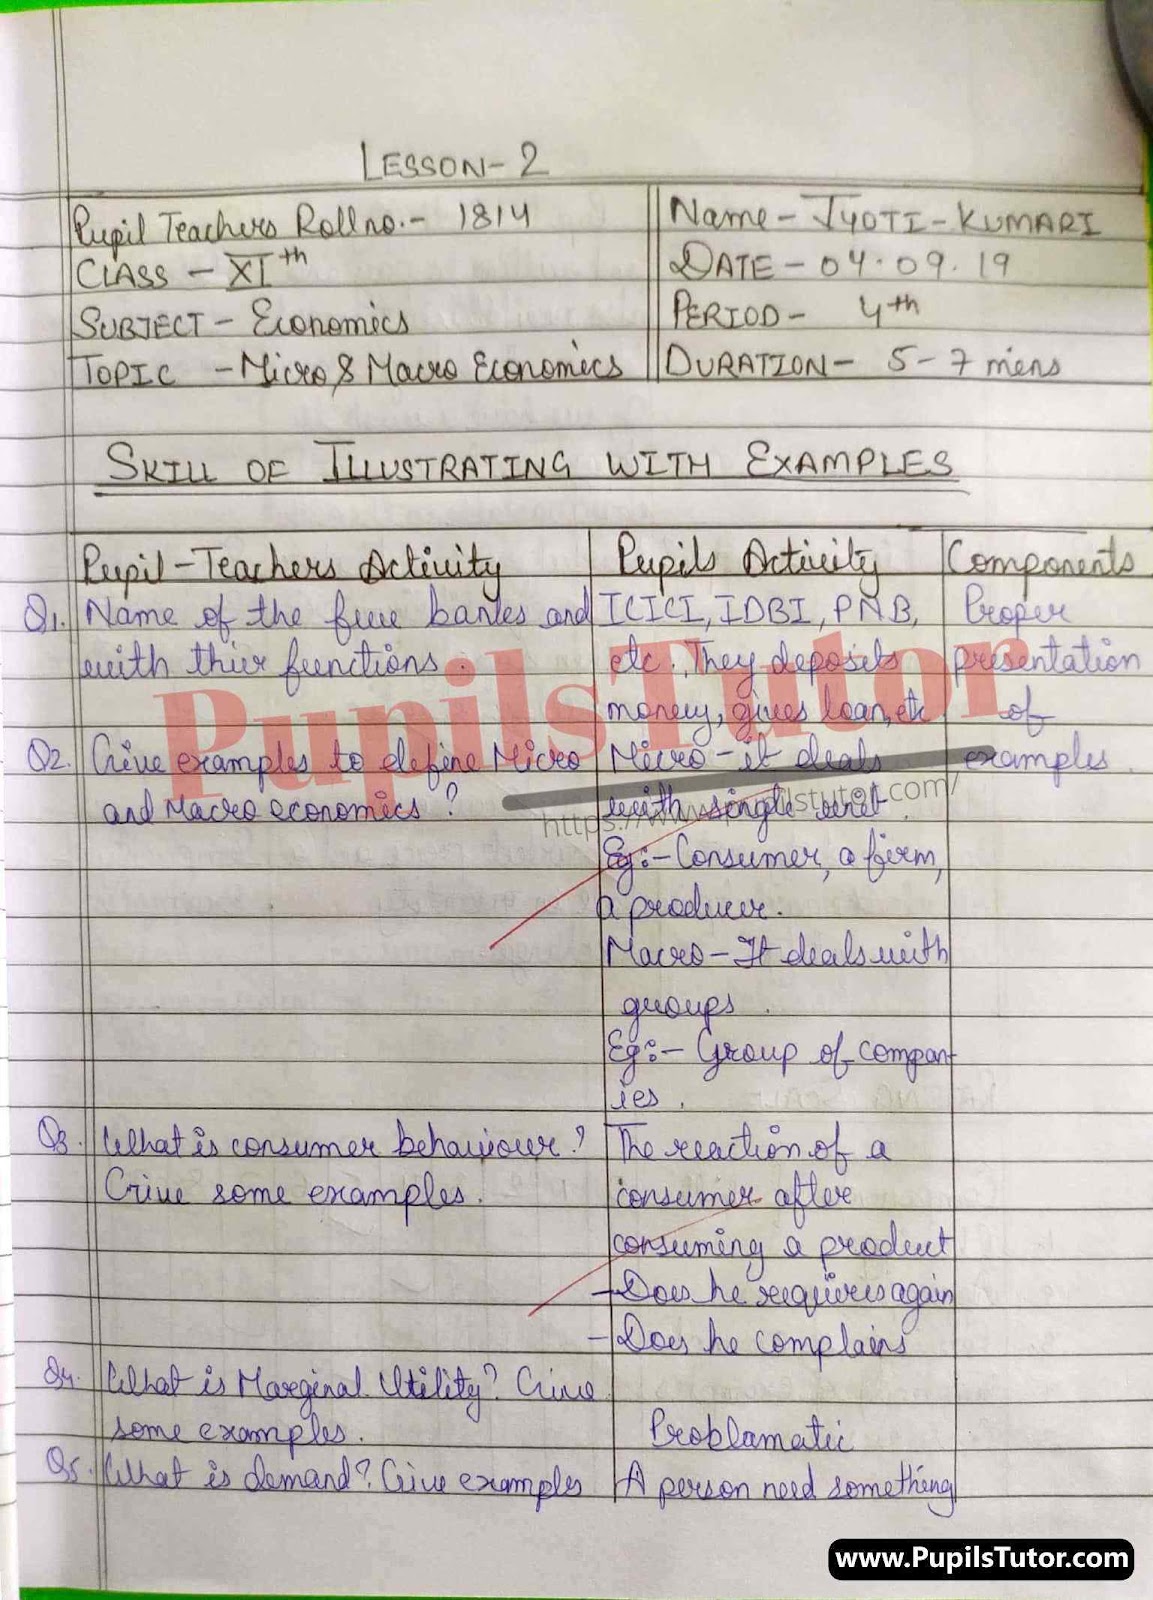 LESSON-2
Pupil Teachers Roll no.- 1814
Name - JYOTI - KUMARI
CLASS - XI th
DATE - 04.09.19
SUBJECT - Economics
PERIOD - 4th
TOPIC - Micro & Macro Economics
DURATION - 5-7 mins
SKILL OF ILLUSTRATING WITH EXAMPLES
Pupil-Teachers Activity
Pupils Activity
Components
Q1. Name of the few banks and
with thier functions.
ICICI, IDBI, PNB,
etc. They deposits
money, gives loan, etc
Proper
presentation
of
examples.
Q2. Give examples to define Micro
and Macro economics?
Micro - it deals
with single unit.
Eg:- Consumer, a firm,
a producer.
Macro - It deals with
groups.
Eg:- Group of compan-
ies.
Q3. What is consumer behaviour?
Give some examples.
The reaction of a
consumer after
consuming a product
- Does he requires again
- Does he complains
Q4. What is Marginal Utility? Give
some examples.
Problamatic
Q5. What is demand? Give examples
A person need something
PupilsTutor
https://www.pupilstutor.com/
www.PupilsTutor.com